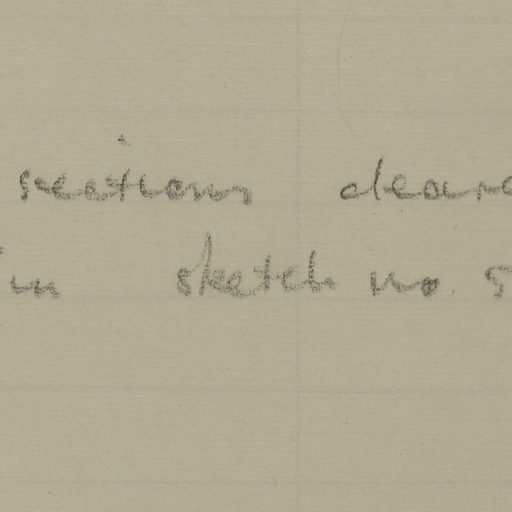 sections clear
in sketch no. 5